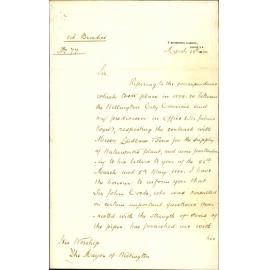 via Brindisi
No 77
7, Westminster Chambers,
March
Sir
Referring to the correspondence
which took place in 1879-80 between
the Wellington City Council and
my predecessor in Office (Sir Julius
Vogel), respecting the contract with
Messrs and Sons for the supply
of Waterworks plant, and more particular-
ly to his letters to you of the
March and 5th May 1880, I have
the honour to inform you that
Sir John Coode, who was consulted
on certain important questions con-
nected with the strength of some of
the pipes, has furnished me with
his
His Worship
The Mayor of Wellington